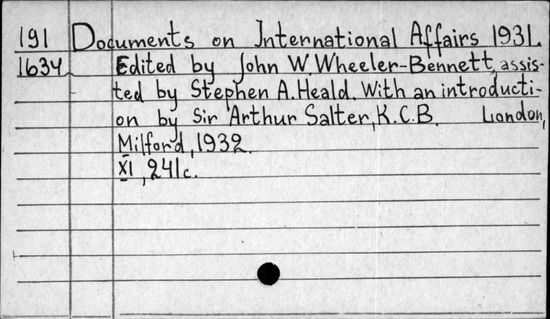 191 Documents on International Affairs 1931.
1634 Edited by John W. Wheeler-Bennett, assis-
ted by Stephen A. Heald. With an introducti-
on by Sir Arthur Salter, K.C.B. London,
Milford, 1932.
XI, 241c.